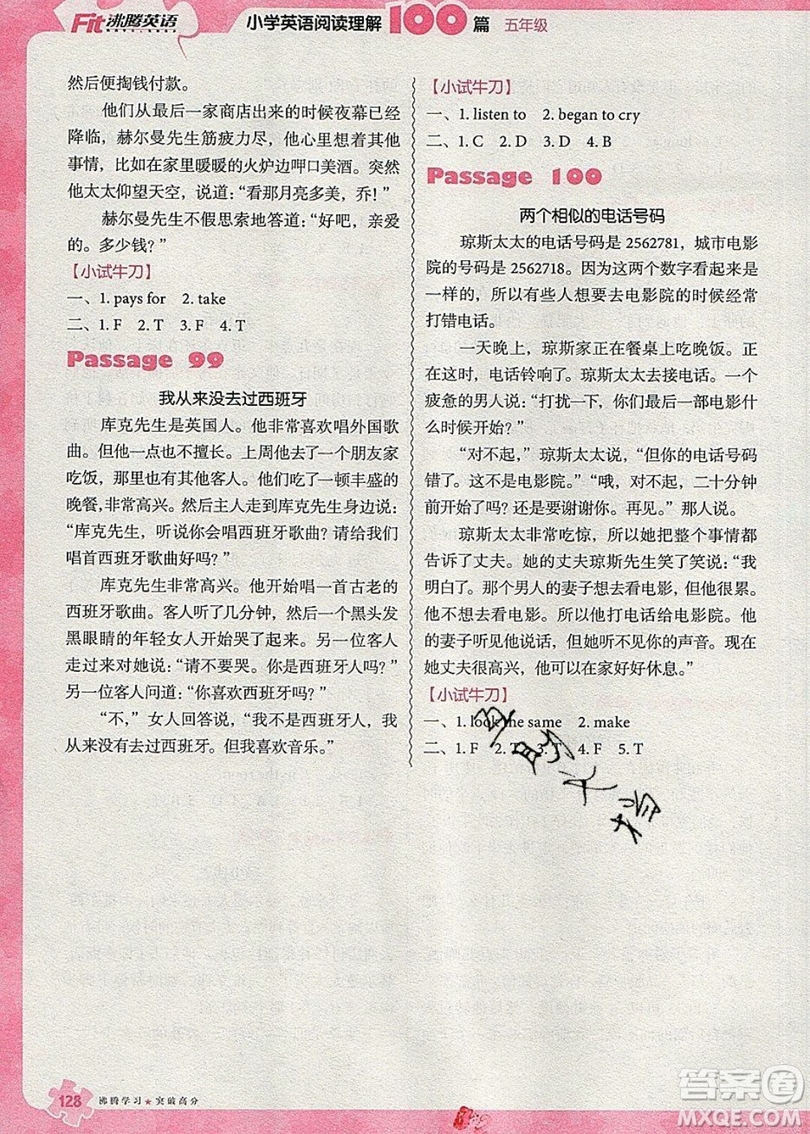 Fit 沸腾英语
小学英语阅读理解100篇 五年级
然后便掏钱付款。
他们从最后一家商店出来的时候夜幕已经
降临，赫尔曼先生筋疲力尽，心里想着其他
事情，比如在家里暖暖的火炉边呷口美酒。突然
他太太仰望天空，说道：“看那月亮多美，乔！”
赫尔曼先生不假思索地答道：“好吧，亲爱
的。多少钱？”
【小试牛刀】
一、1. pays for 2. take
二、1. F 2. T 3. F 4. T
Passage 99
我从来没去过西班牙
库克先生是英国人。他非常喜欢唱外国歌
曲。但他一点也不擅长。上周他去了一个朋友家
吃饭，那里也有其他客人。他们吃了一顿丰盛的
晚餐，非常高兴。然后主人走到库克先生身边说：
“库克先生，听说你会唱西班牙歌曲？请给我们
唱首西班牙歌曲好吗？”
库克先生非常高兴。他开始唱一首古老的
西班牙歌曲。客人听了几分钟，然后一个黑头发
黑眼睛的年轻女人开始哭了起来。另一个女人
走过来对她说：“请不要哭。你是西班牙人吗？”
另一位客人问道：“你喜欢西班牙吗？”
“不，”女人回答说，“我不是西班牙人，我
从来没去过西班牙。但我喜欢音乐。”
【小试牛刀】
一、1. listen to 2. began to cry
二、1. C 2. D 3. D 4. B
Passage 100
两个相似的电话号码
琼斯太太的电话号码是 2562781，城市电影
院的号码是 2562718。因为这两个数字看起来是
一样的，所以有些人想要去电影院的时候经常
打错电话。
一天晚上，琼斯家正在餐桌上吃晚饭。正
在这时，电话铃响了。琼斯太太去接电话。一个
疲惫的男人说：“打扰一下，你们的最后一部电影什
么时候开始？”
“对不起，”琼斯太太说，“但你的电话号码
错了。这不是电影院。”“哦，对不起，二十分钟
前开始了吗？还是要谢谢你。再见。”那人说。
琼斯太太非常吃惊，所以她把整个事情都
告诉了丈夫。她的丈夫琼斯先生笑了笑说：“我
明白了。那个男人的妻子想去看电影，但他很累。
他不想去看电影。所以他打电话给电影院。他
的妻子听见他说话，但她听不见你的声音。现在
她丈夫很高兴，因为他可以在家好好休息。”
【小试牛刀】
一、1. look the same 2. make
二、1. F 2. T 3. T 4. F 5. T
128 沸腾学习★突破高分
答案圈
MXQE.COM